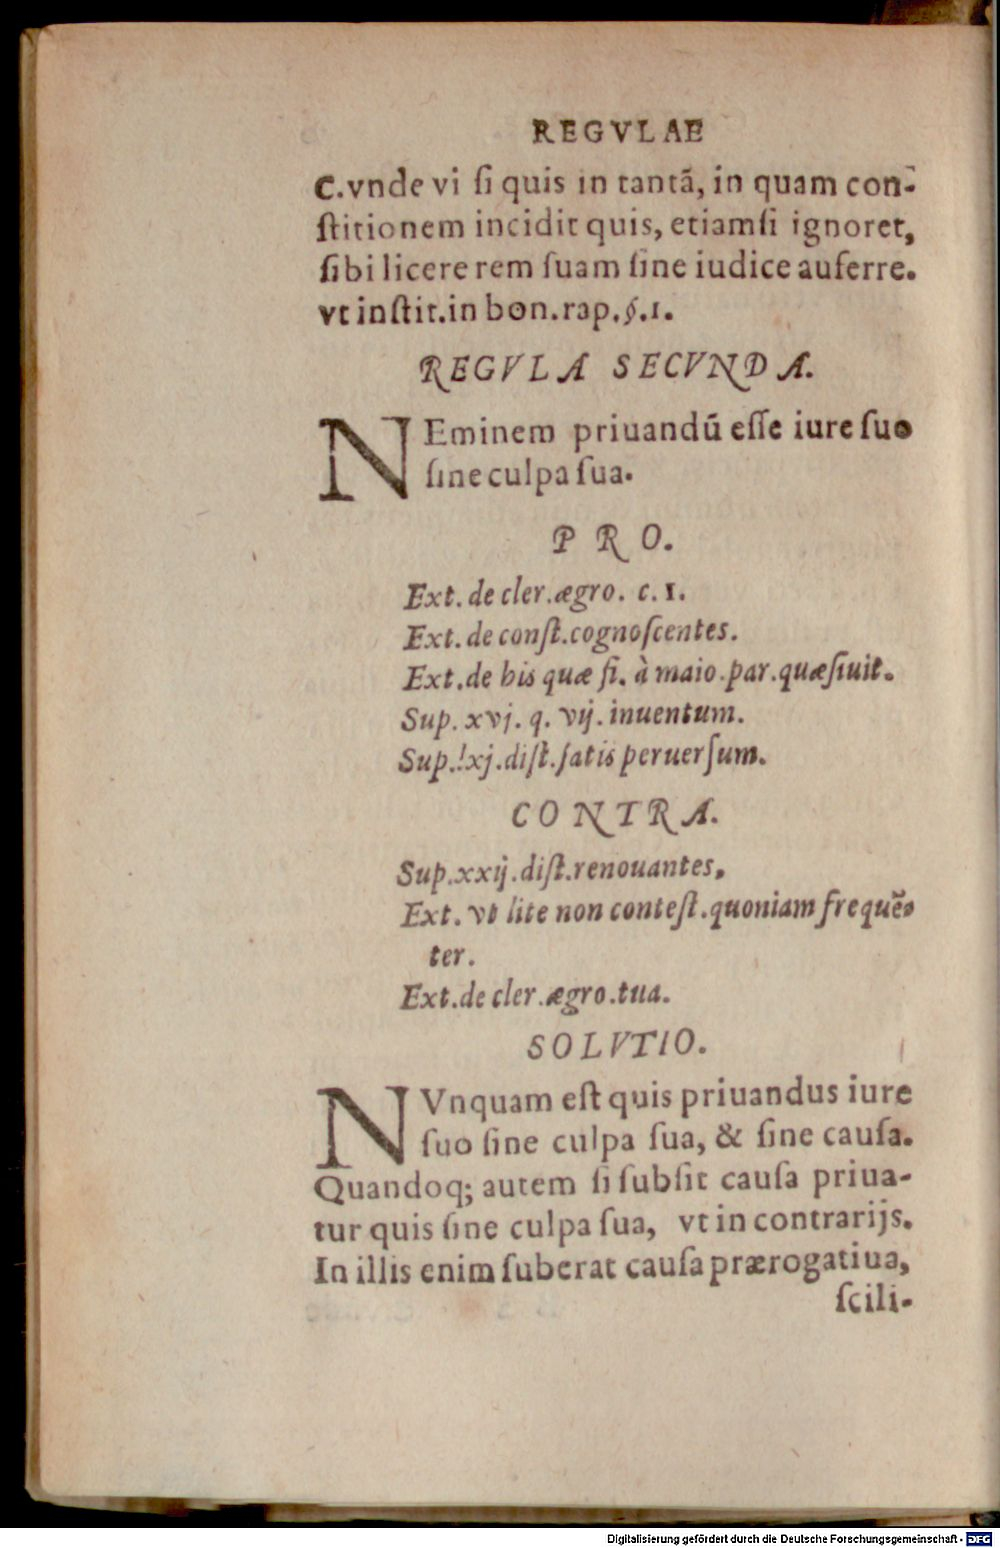 REGVLAE
C. vnde vi ſi quis in tantã, in quam con-
ſtitionem incidit quis, etiamſi ignoret,
ſibi licere rem ſuam ſine iudice auferre.
vt inſtit. in bon. rap. §. 1.
REGVLA SECVNDA.
NEminem priuandũ eſſe iure ſuo
ſine culpa ſua.
PRO.
Ext. de cler. ægro. c. 1.
Ext. de conſt. cognoſcentes.
Ext. de his quæ fi. à maio. par. quæſiuit.
Sup. xvj. q. vij. inuentum.
Sup. lxj. diſt. ſatis peruerſum.
CONTRA.
Sup. xxij. diſt. renouantes.
Ext. vt lite non conteſt. quoniam frequẽ-
ter.
Ext. de cler. ægro. tua.
SOLVTIO.
NVnquam eſt quis priuandus iure
ſuo ſine culpa ſua, & ſine cauſa.
Quandoq; autem ſi ſubſit cauſa priua-
tur quis ſine culpa ſua, vt in contrarijs.
In illis enim ſuberat cauſa prærogatiua,
ſcili-
Digitalisierung gefördert durch die Deutsche Forschungsgemeinschaft - DFG